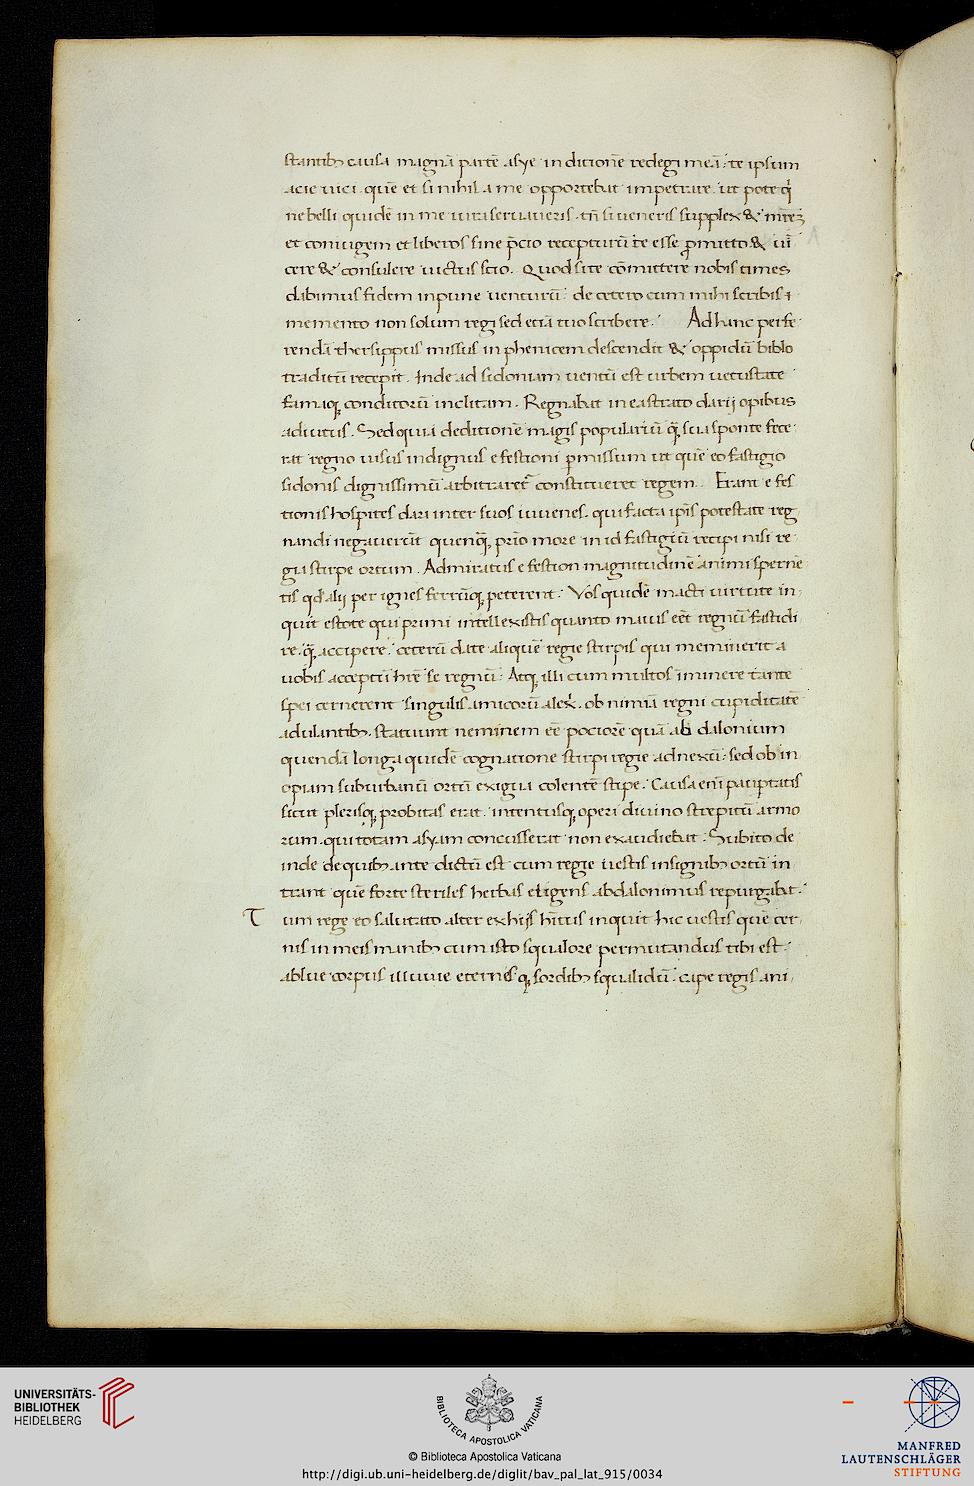 stantib; causa magnā partē asye in ditionē redegi meā: te ipsum
acie uici. quē et si nihil a me opportebat impetrare. ut pote q̇
ne belli quidē in me iura seruaueris. tn̄ si ueneris supplex & mr̄ēz
et coniugem et liberos sine p̄cio recepturū te esse p̱mitto & ui
cere & consulere uictis scio. Quod si te cōmittere nobis times
dabimus fidem inpune uenturū: de cetero cum mihi scribis
memento non solum regi sed etiā tuo scribere: Ad hanc perfe
rendā thersippus missus in phenicem descendit & oppidū biblo
traditū recepit. Inde ad sidoniam uentū est urbem uetustate
famaq; conditorū inclitam. Regnabat in ea strato darij opibus
adiutus. Sed quia deditionē magis populariū q̄ sua sponte fece
rat regno uisus indignus efestioni p̱missum ut quē eo fastigio
sidonis dignissimū arbitraret̄ constitueret regem. Erant efes
tionis hospites clari inter suos iuuenes. qui facta ip̄is potestate reg
nandi negauerūt quenq̄; prio more in id fastigiū recipi nisi re
gia stirpe ortum. Admiratus efestion magnitudinē animi spernē
tis qd̄ alij per ignes ferrūq; peterent: Vos quidē macti uirtute in
quit estote qui primi intellexistis quanto maius eēt regnū fastidi
re. q̄ accipere: ceterū date aliquē regie stirpis qui meminerit a
uobis acceptū hr̄e se regnū: Atq; illi cum multos iminere tante
spei cernerent singulis amicorū alex̄. ob nimiā regni cupiditatē
adulantib; statuunt neminem eē pociorē quā ab dalonium
quendā longa quidē cognatione stirpi regie adnexū: sed ob in
opiam suburbanū ortū exigua colentē stipe: Causa eni paup̱tatis
sicut plerisq; probitas erat. intentusq; operi diurno strepitū armo
rum. qui totam asyam concusserat non exaudiebat: Subito de
inde de quib; ante dictū est cum regie uestis insignib; ortū in
trant quē forte steriles herbas eligens abdalonimus repurgabat:
Tum rege eo salutato alter ex hijs hītus inquit hic uestis quē cer
nis in meis manib; cum isto squalore permutandus tibi est:
ablue corpus illuuie eternisq; sordib; squalidū: cape regis ani
UNIVERSITÄTS-
BIBLIOTHEK
HEIDELBERG
BIBLIOTECA APOSTOLICA VATICANA
© Biblioteca Apostolica Vaticana
http://digi.ub.uni-heidelberg.de/diglit/bav_pal_lat_915/0034
MANFRED
LAUTENSCHLÄGER
STIFTUNG